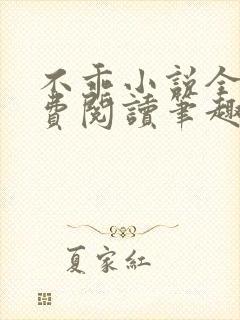 不乖小说全
費閱讀筆趣
夏家紅